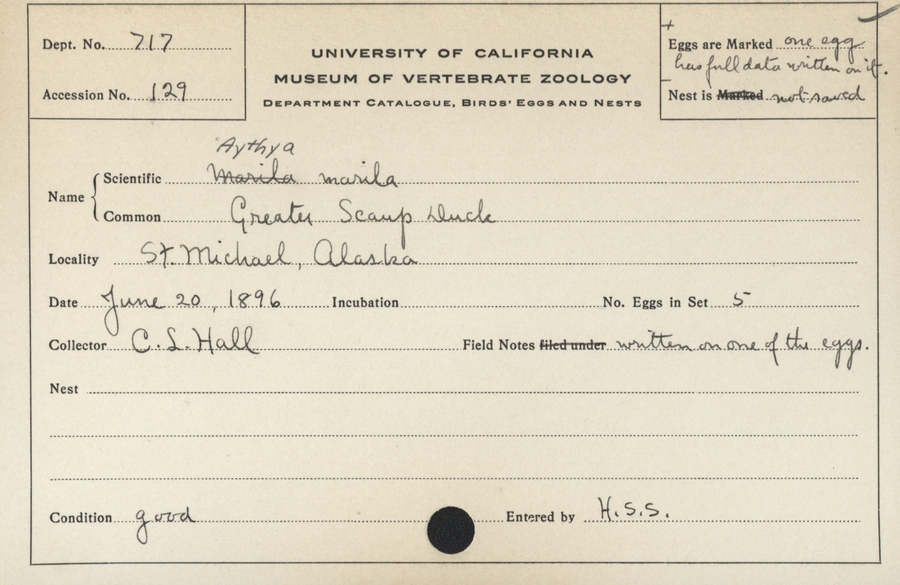 Dept. No. 717
Accession No. 129
UNIVERSITY OF CALIFORNIA
MUSEUM OF VERTEBRATE ZOOLOGY
DEPARTMENT CATALOGUE, BIRDS' EGGS AND NESTS
Eggs are Marked one egg
has full data written on it.
Nest is Marked not saved
Aythya
Name
Scientific Marila marila
Common Greater Scaup Duck
Locality St. Michael, Alaska
Date June 20, 1896 Incubation No. Eggs in Set 5
Collector C. L. Hall Field Notes filed under written on one of the eggs.
Nest
Condition good Entered by H.S.S.